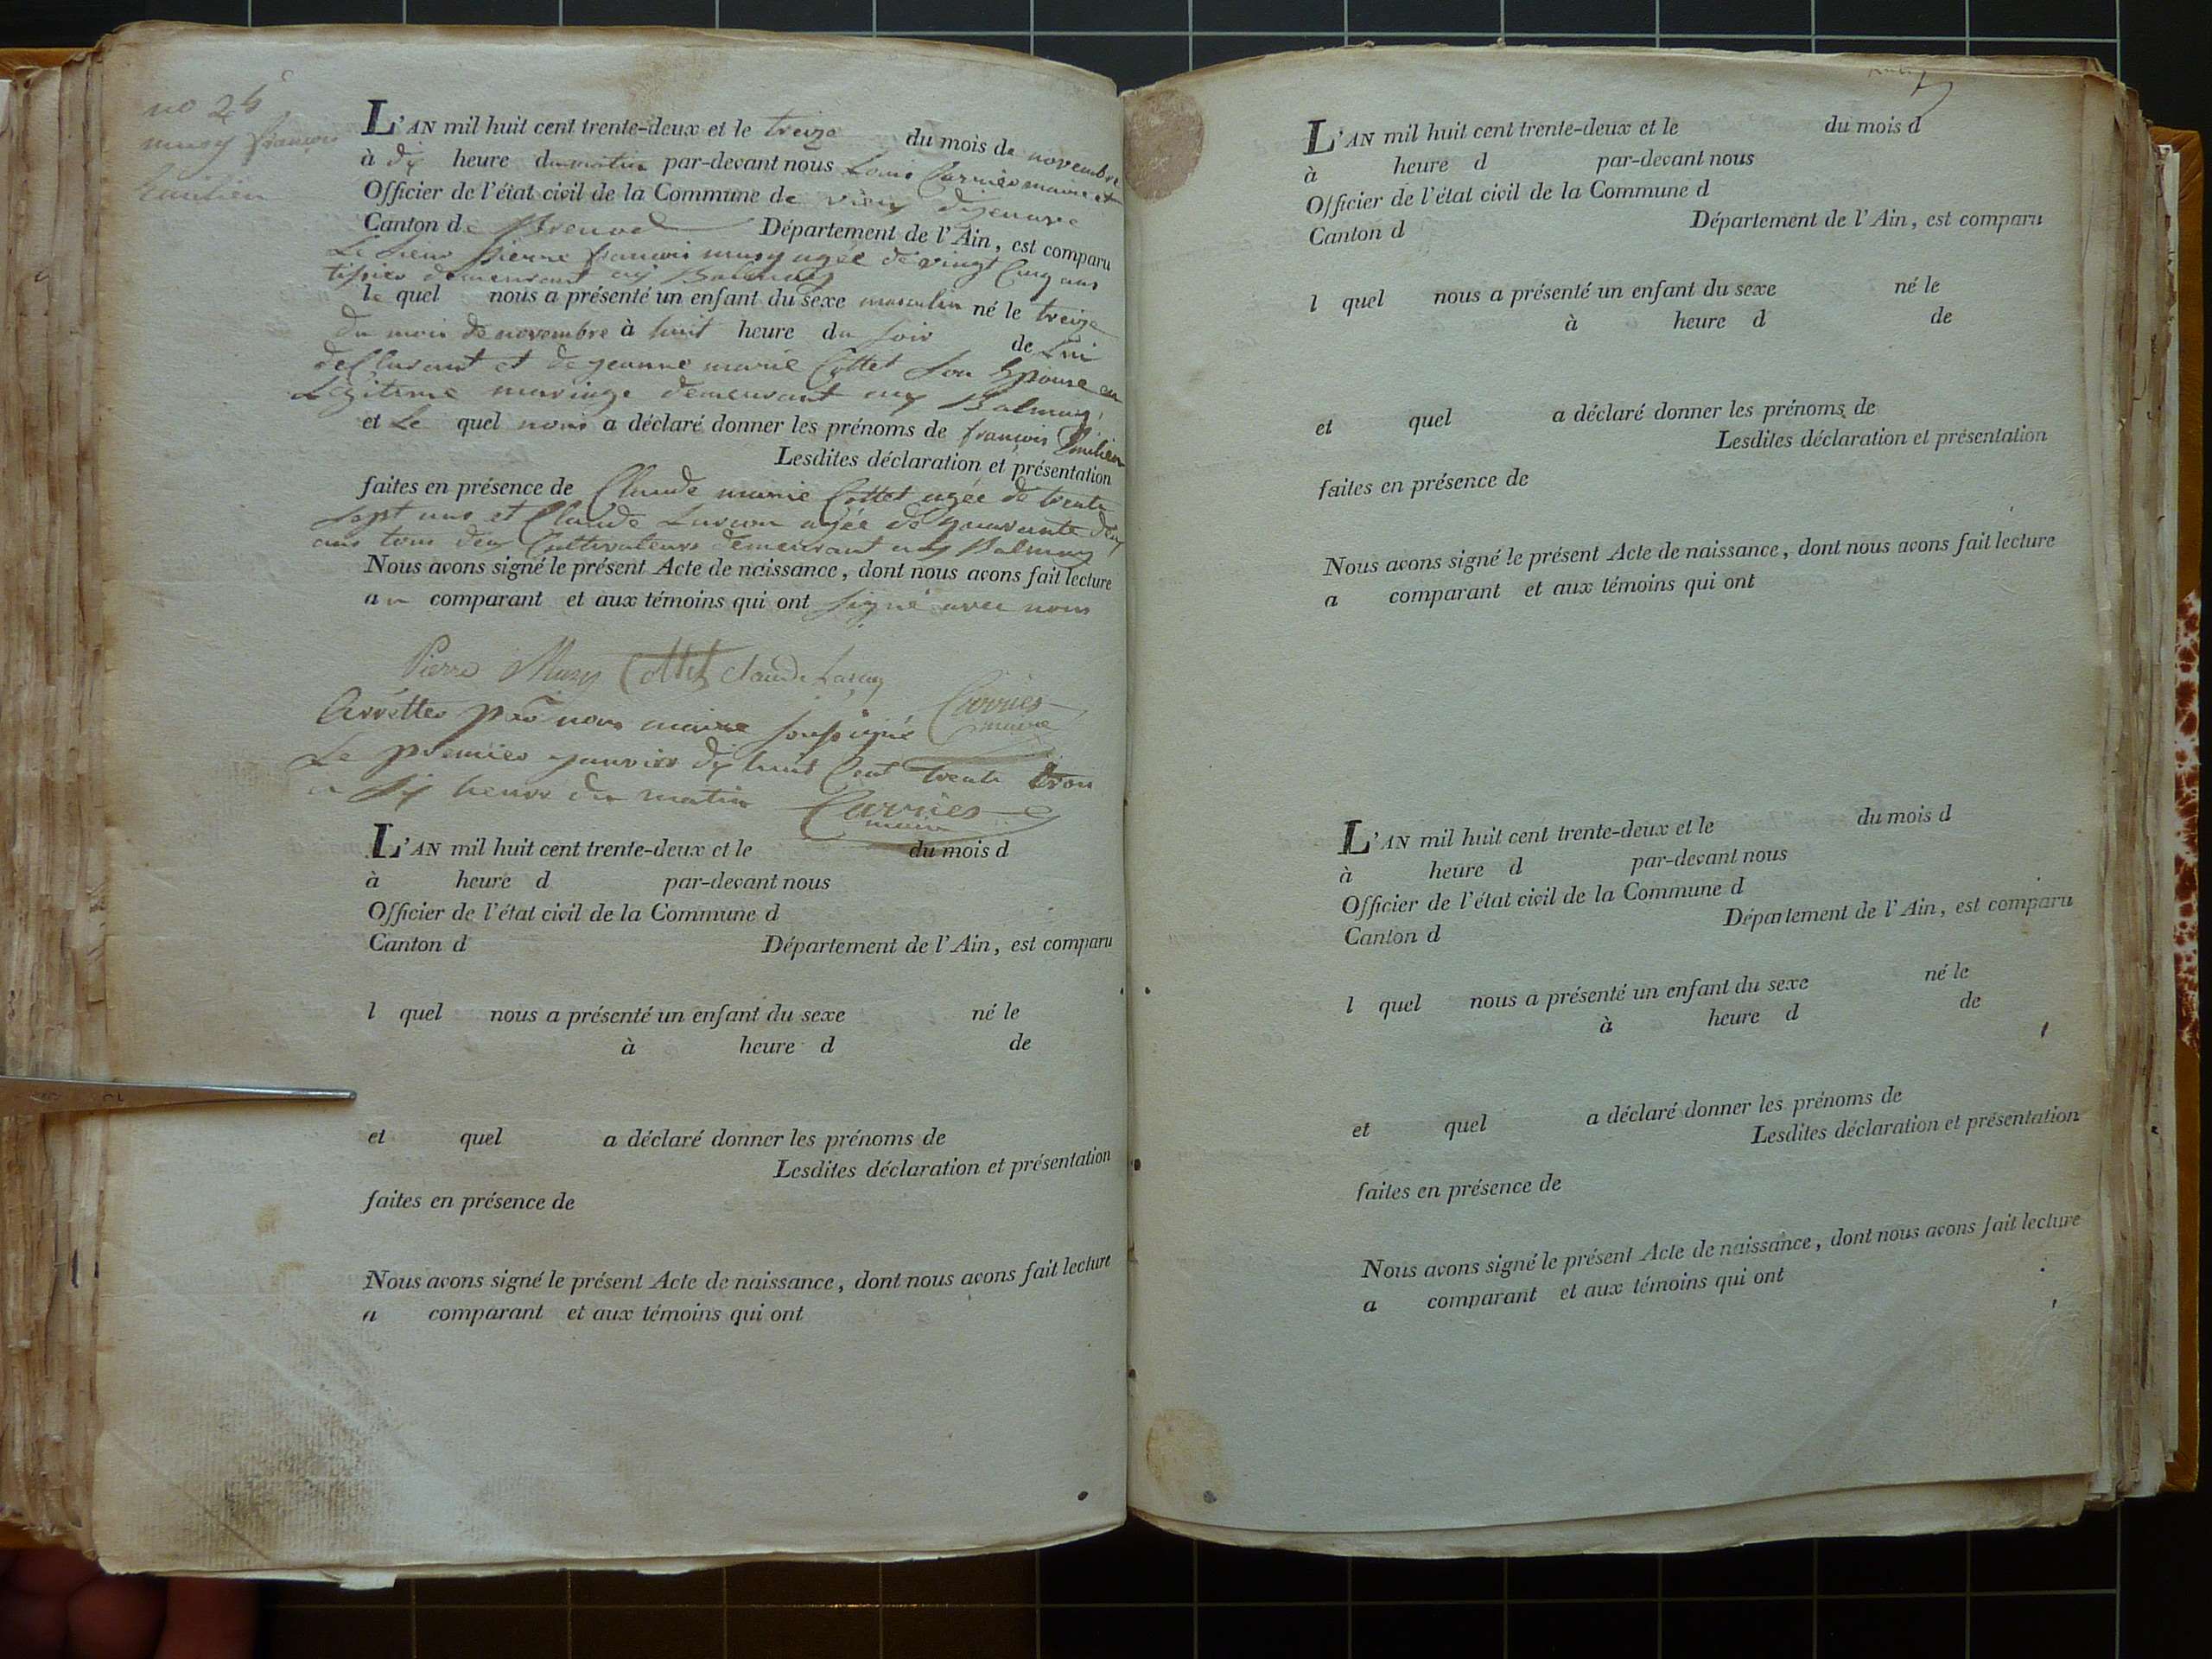 no 26
musy françois
Emilien
L'AN mil huit cent trente-deux et le treize du mois de novembre
à dix heure du matin par-devant nous Louis Carrier maire et
Officier de l'état civil de la Commune de vieux d'izenave
Canton de Brenod Département de l'Ain, est comparu
Le sieur pierre françois musy agée de vingt Cinq ans
demeurant aux Balmay
le quel nous a présenté un enfant du sexe masculin né le treize
du mois de novembre à huit heure du soir de Lui
declarant et de jeanne marie Cottet son Epouse en
Legitime mariage demeurant aux Balmay
et Le quel nous a déclaré donner les prénoms de françois Emilien
Lesdites déclaration et présentation
faites en présence de Claude marie Cottet agée de trente
sept ans et Claude agée de quarante deux
ans tous deux Cultivateurs demeurant aux Balmay
Nous avons signé le présent Acte de naissance, dont nous avons fait lecture
au comparant et aux témoins qui ont signé avec nous
Pierre Musy Cottet Claude
Carrier
maire
Arrêtter par nous maire soussigné
Le premier janvier dix huit Cent trente trois
a six heures du matin Carrier
maire
L'AN mil huit cent trente-deux et le du mois d
à heure d par-devant nous
Officier de l'état civil de la Commune d
Canton d Département de l'Ain, est comparu
l quel nous a présenté un enfant du sexe né le
à heure d de
et quel a déclaré donner les prénoms de
Lesdites déclaration et présentation
faites en présence de
Nous avons signé le présent Acte de naissance, dont nous avons fait lecture
a comparant et aux témoins qui ont
L'AN mil huit cent trente-deux et le du mois d
à heure d par-devant nous
Officier de l'état civil de la Commune d
Canton d Département de l'Ain, est comparu
l quel nous a présenté un enfant du sexe né le
à heure d de
et quel a déclaré donner les prénoms de
Lesdites déclaration et présentation
faites en présence de
Nous avons signé le présent Acte de naissance, dont nous avons fait lecture
a comparant et aux témoins qui ont
L'AN mil huit cent trente-deux et le du mois d
à heure d par-devant nous
Officier de l'état civil de la Commune d
Canton d Département de l'Ain, est comparu
l quel nous a présenté un enfant du sexe né le
à heure d de
et quel a déclaré donner les prénoms de
Lesdites déclaration et présentation
faites en présence de
Nous avons signé le présent Acte de naissance, dont nous avons fait lecture
a comparant et aux témoins qui ont